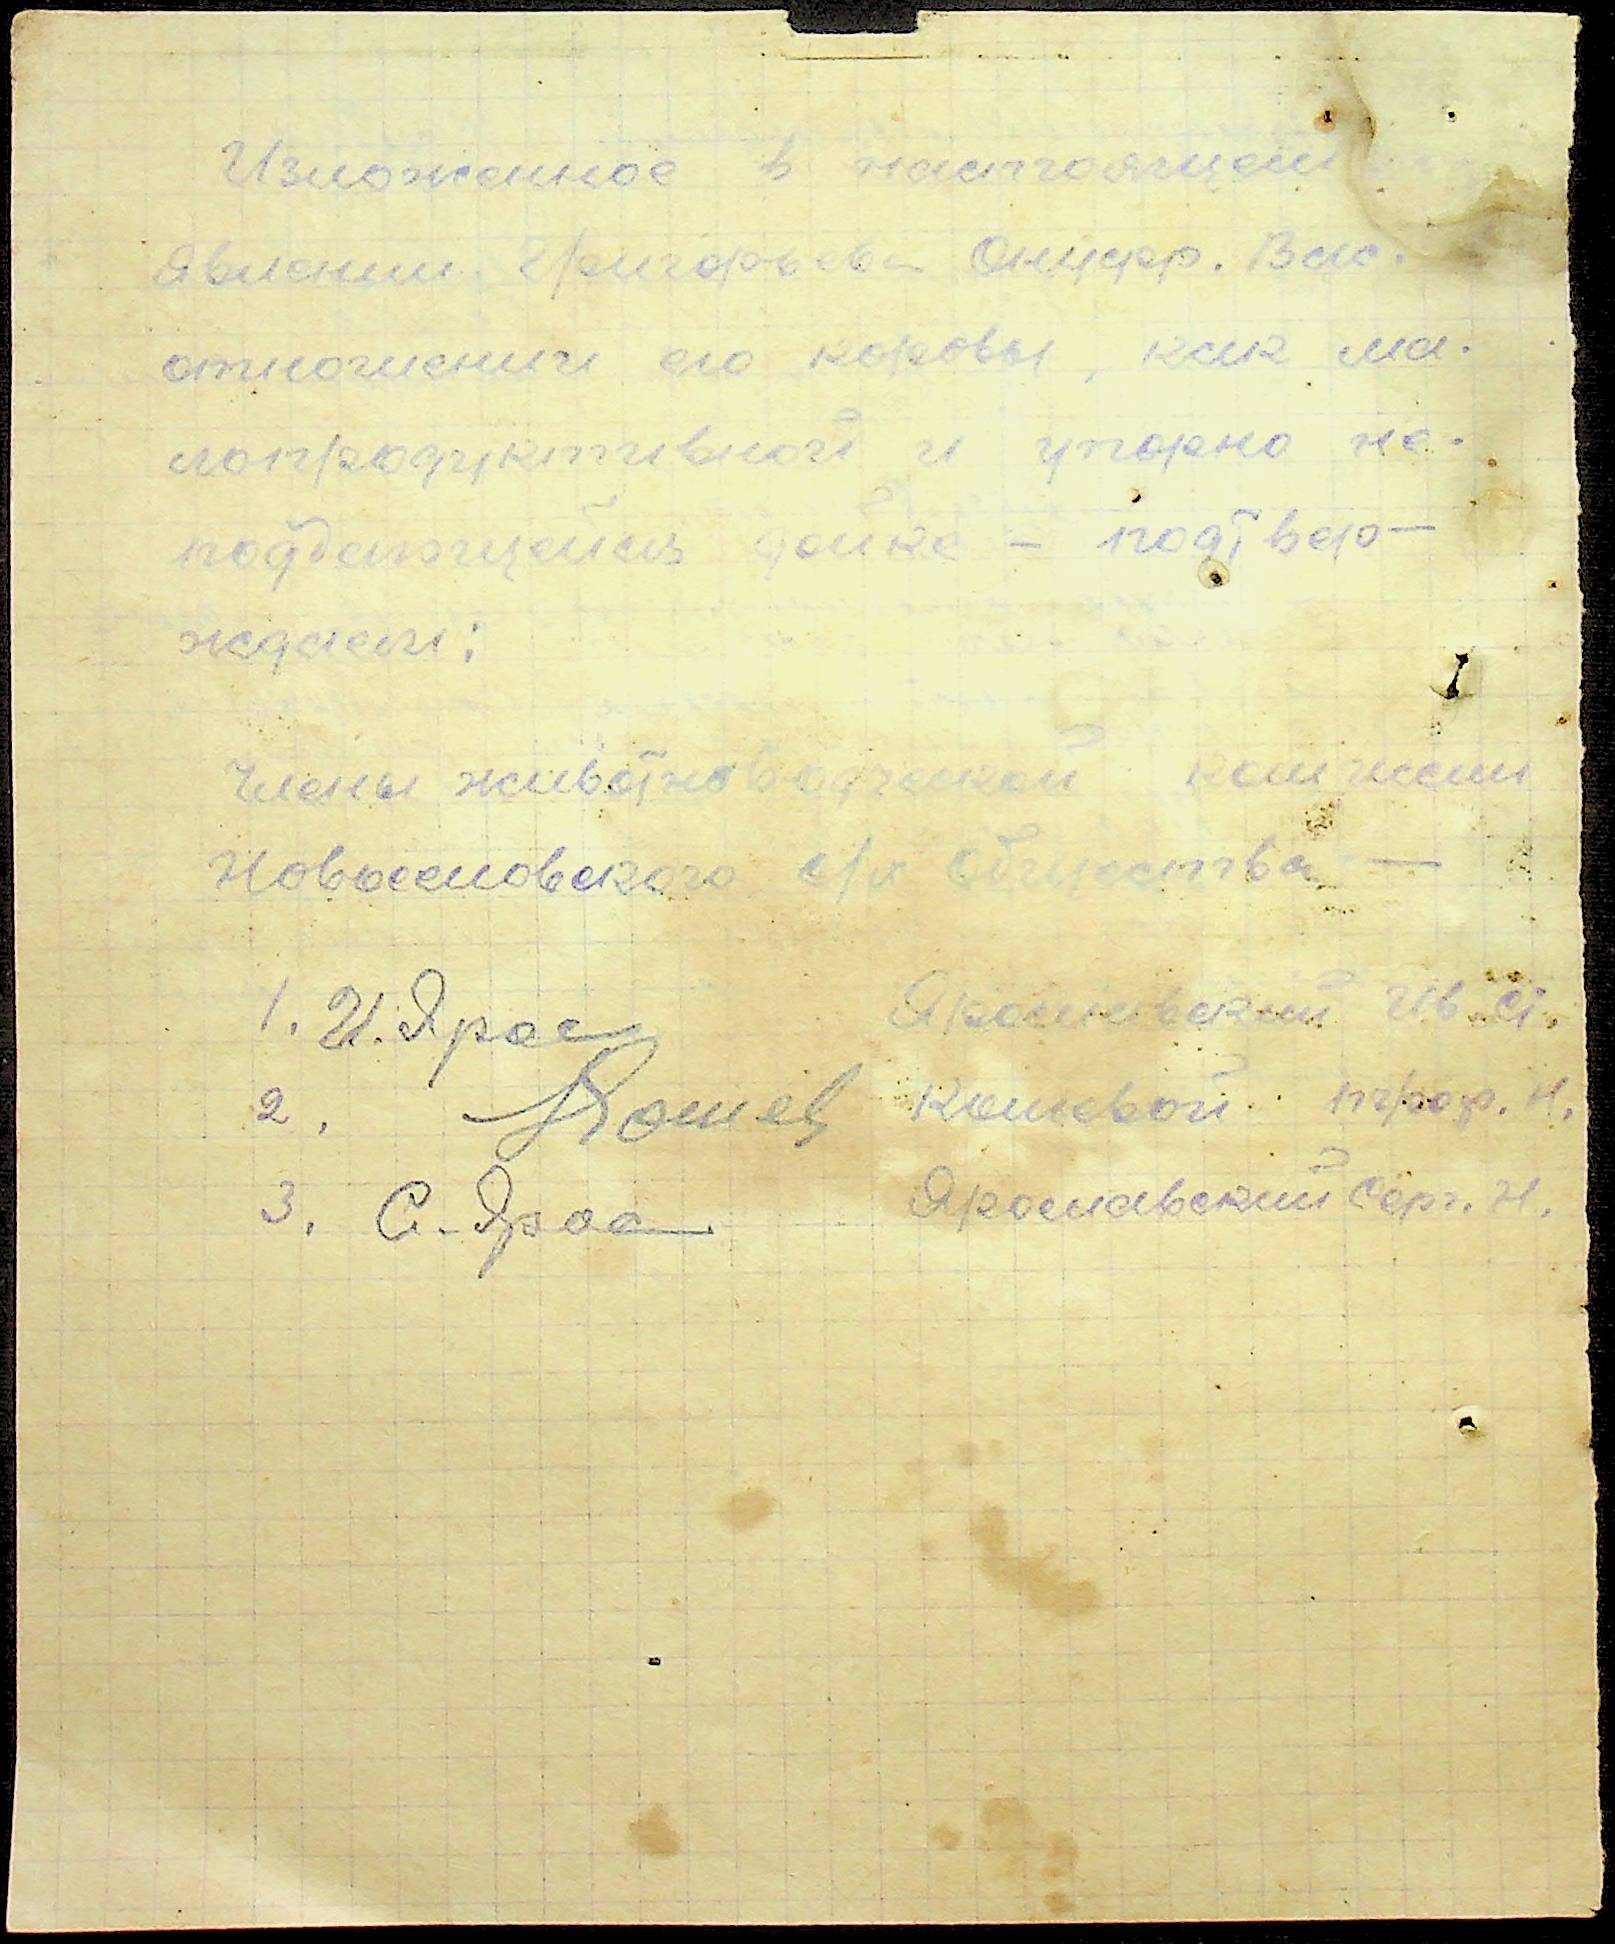 Изложенное в настоящем
явлении Григорьева Онуфр. Вас.
отношении его коровы, как ма-
лопродуктивной и упорно не-
поддающейся дойке – подтвер-
ждаем:
Члены животноводческой комиссии
Новоселовского с/х общества —
1. И. Ярос Ярославский Ив. Ст.
2. Кошев Кошевой Проф. Н.
3. С. Ярос Ярославский Серг. Н.